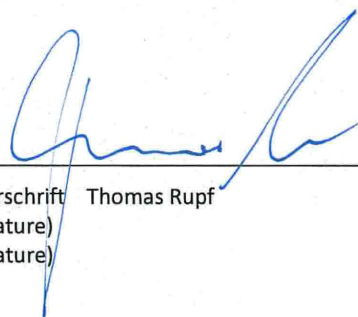 rschrift Thomas Rupf
ature)
ature)